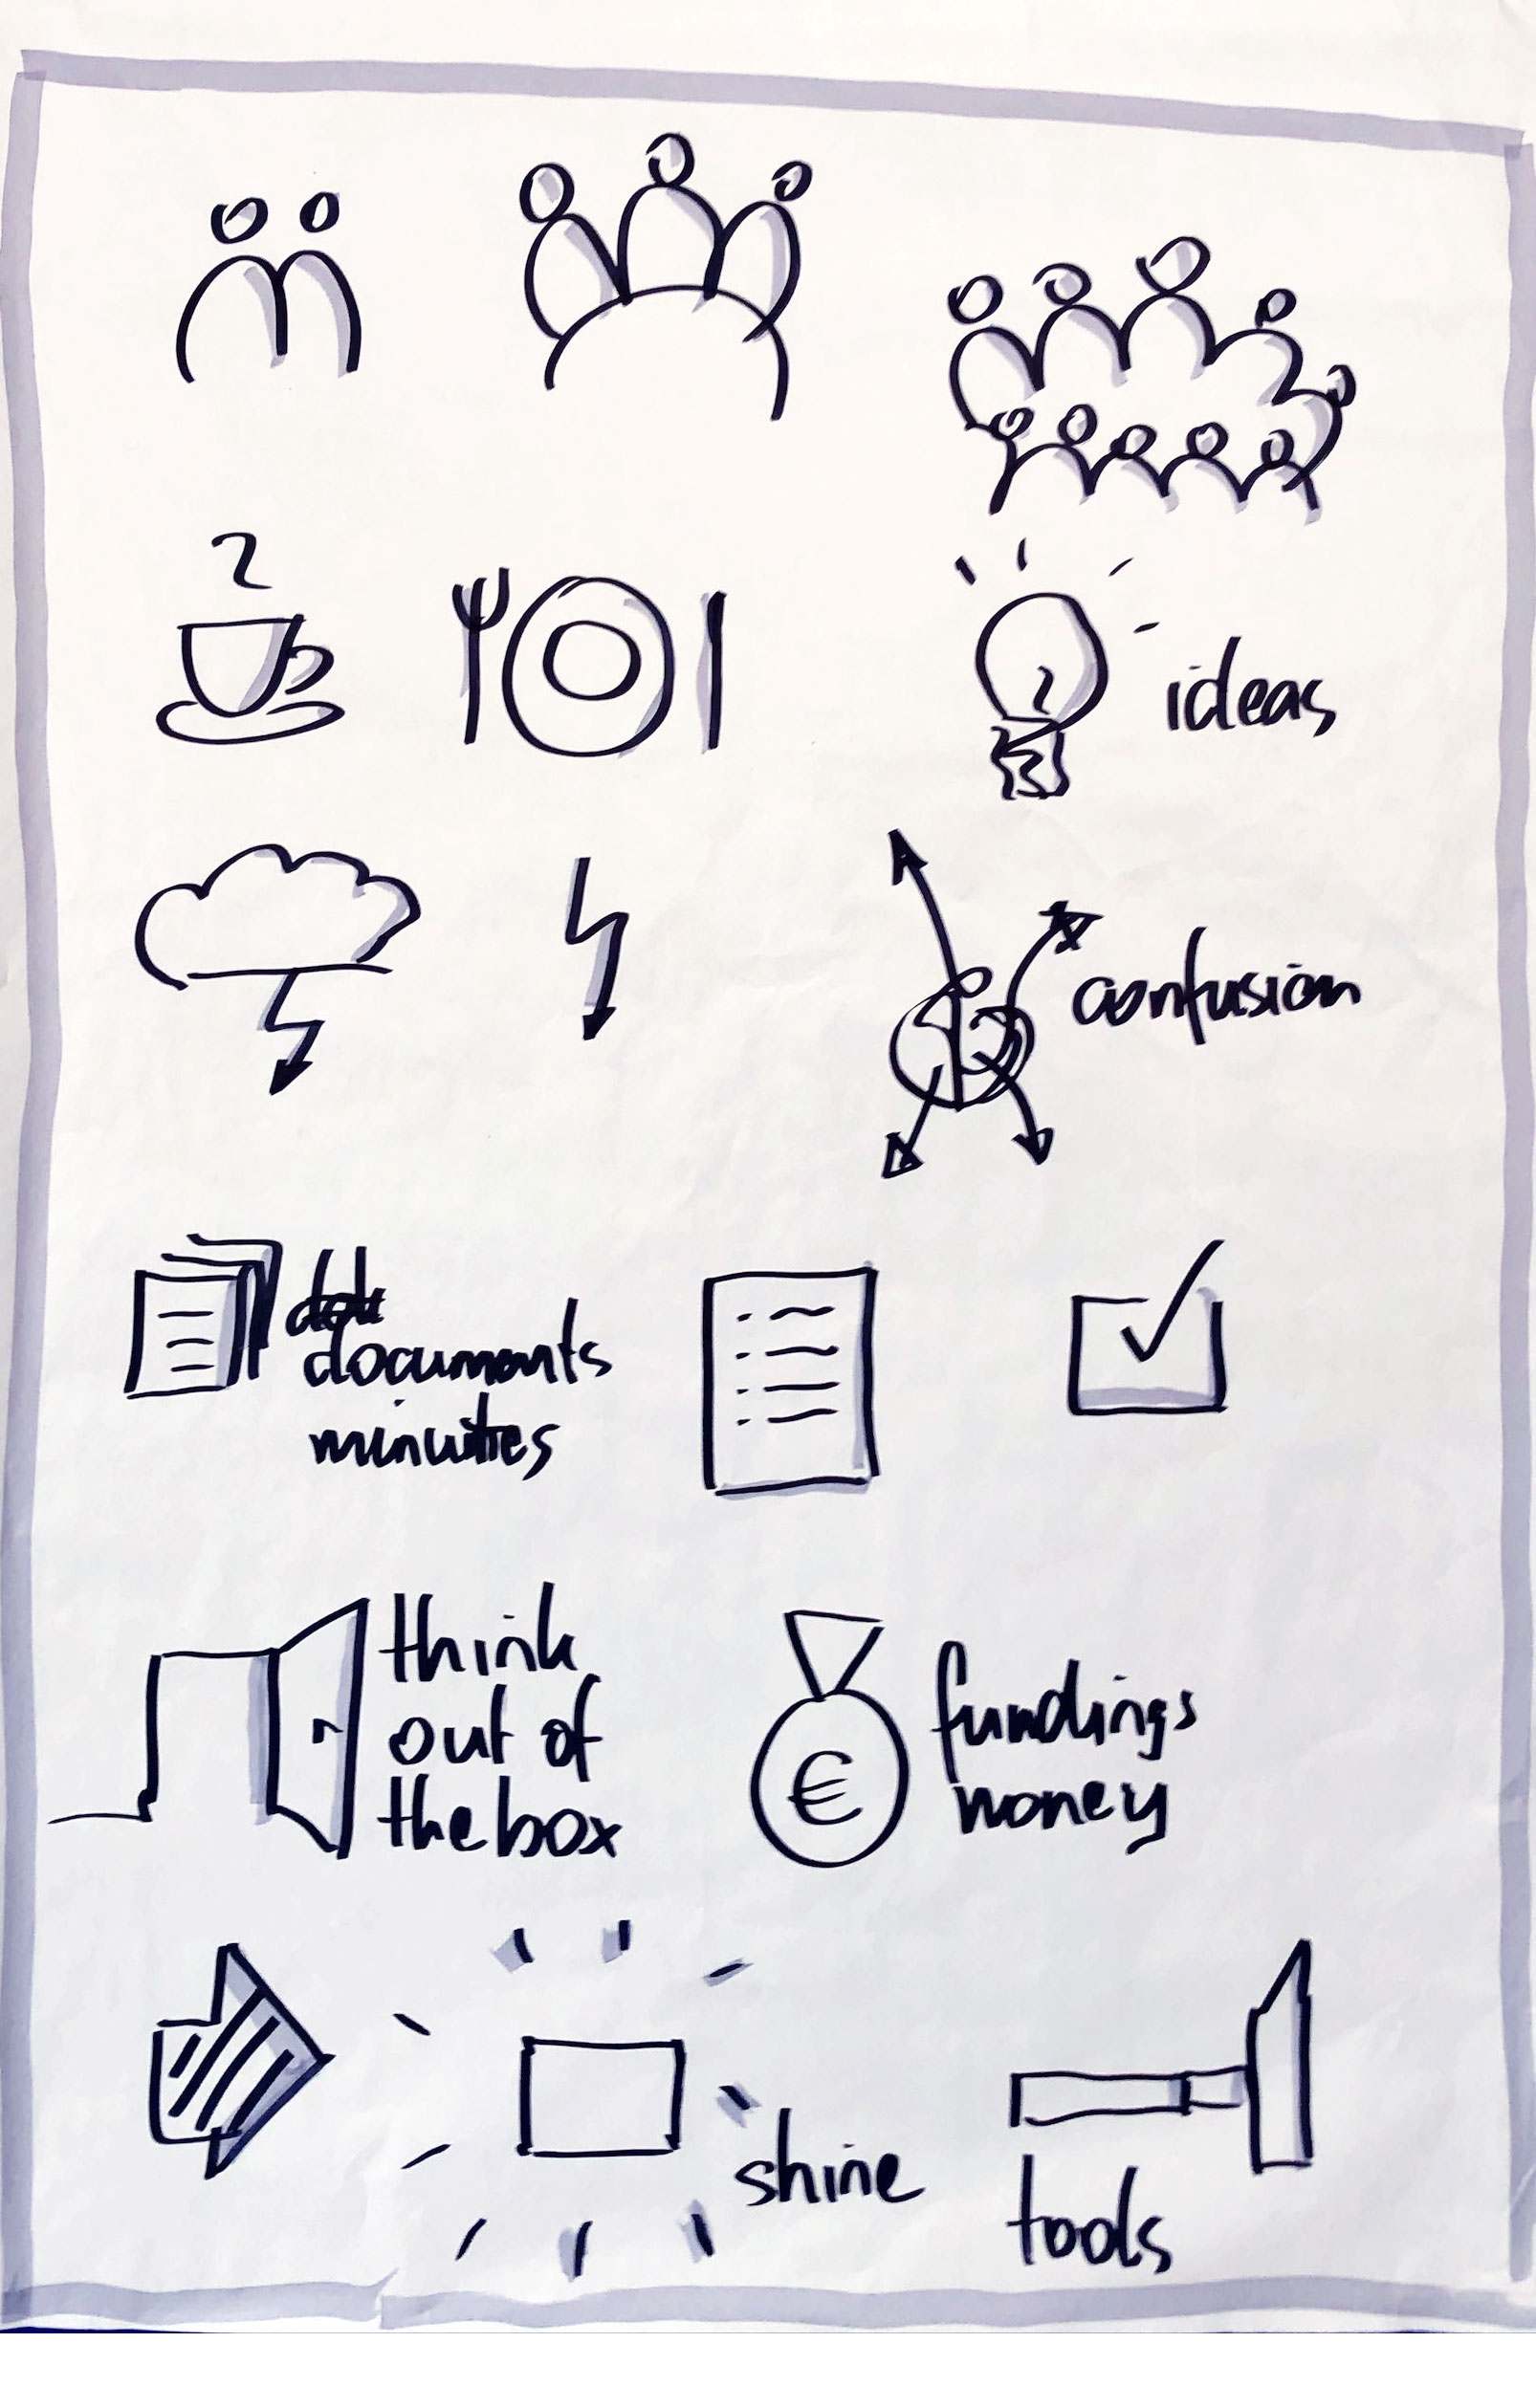 ideas
confusion
documents
minutes
think
out of
the box
€
fundings
money
shine
tools